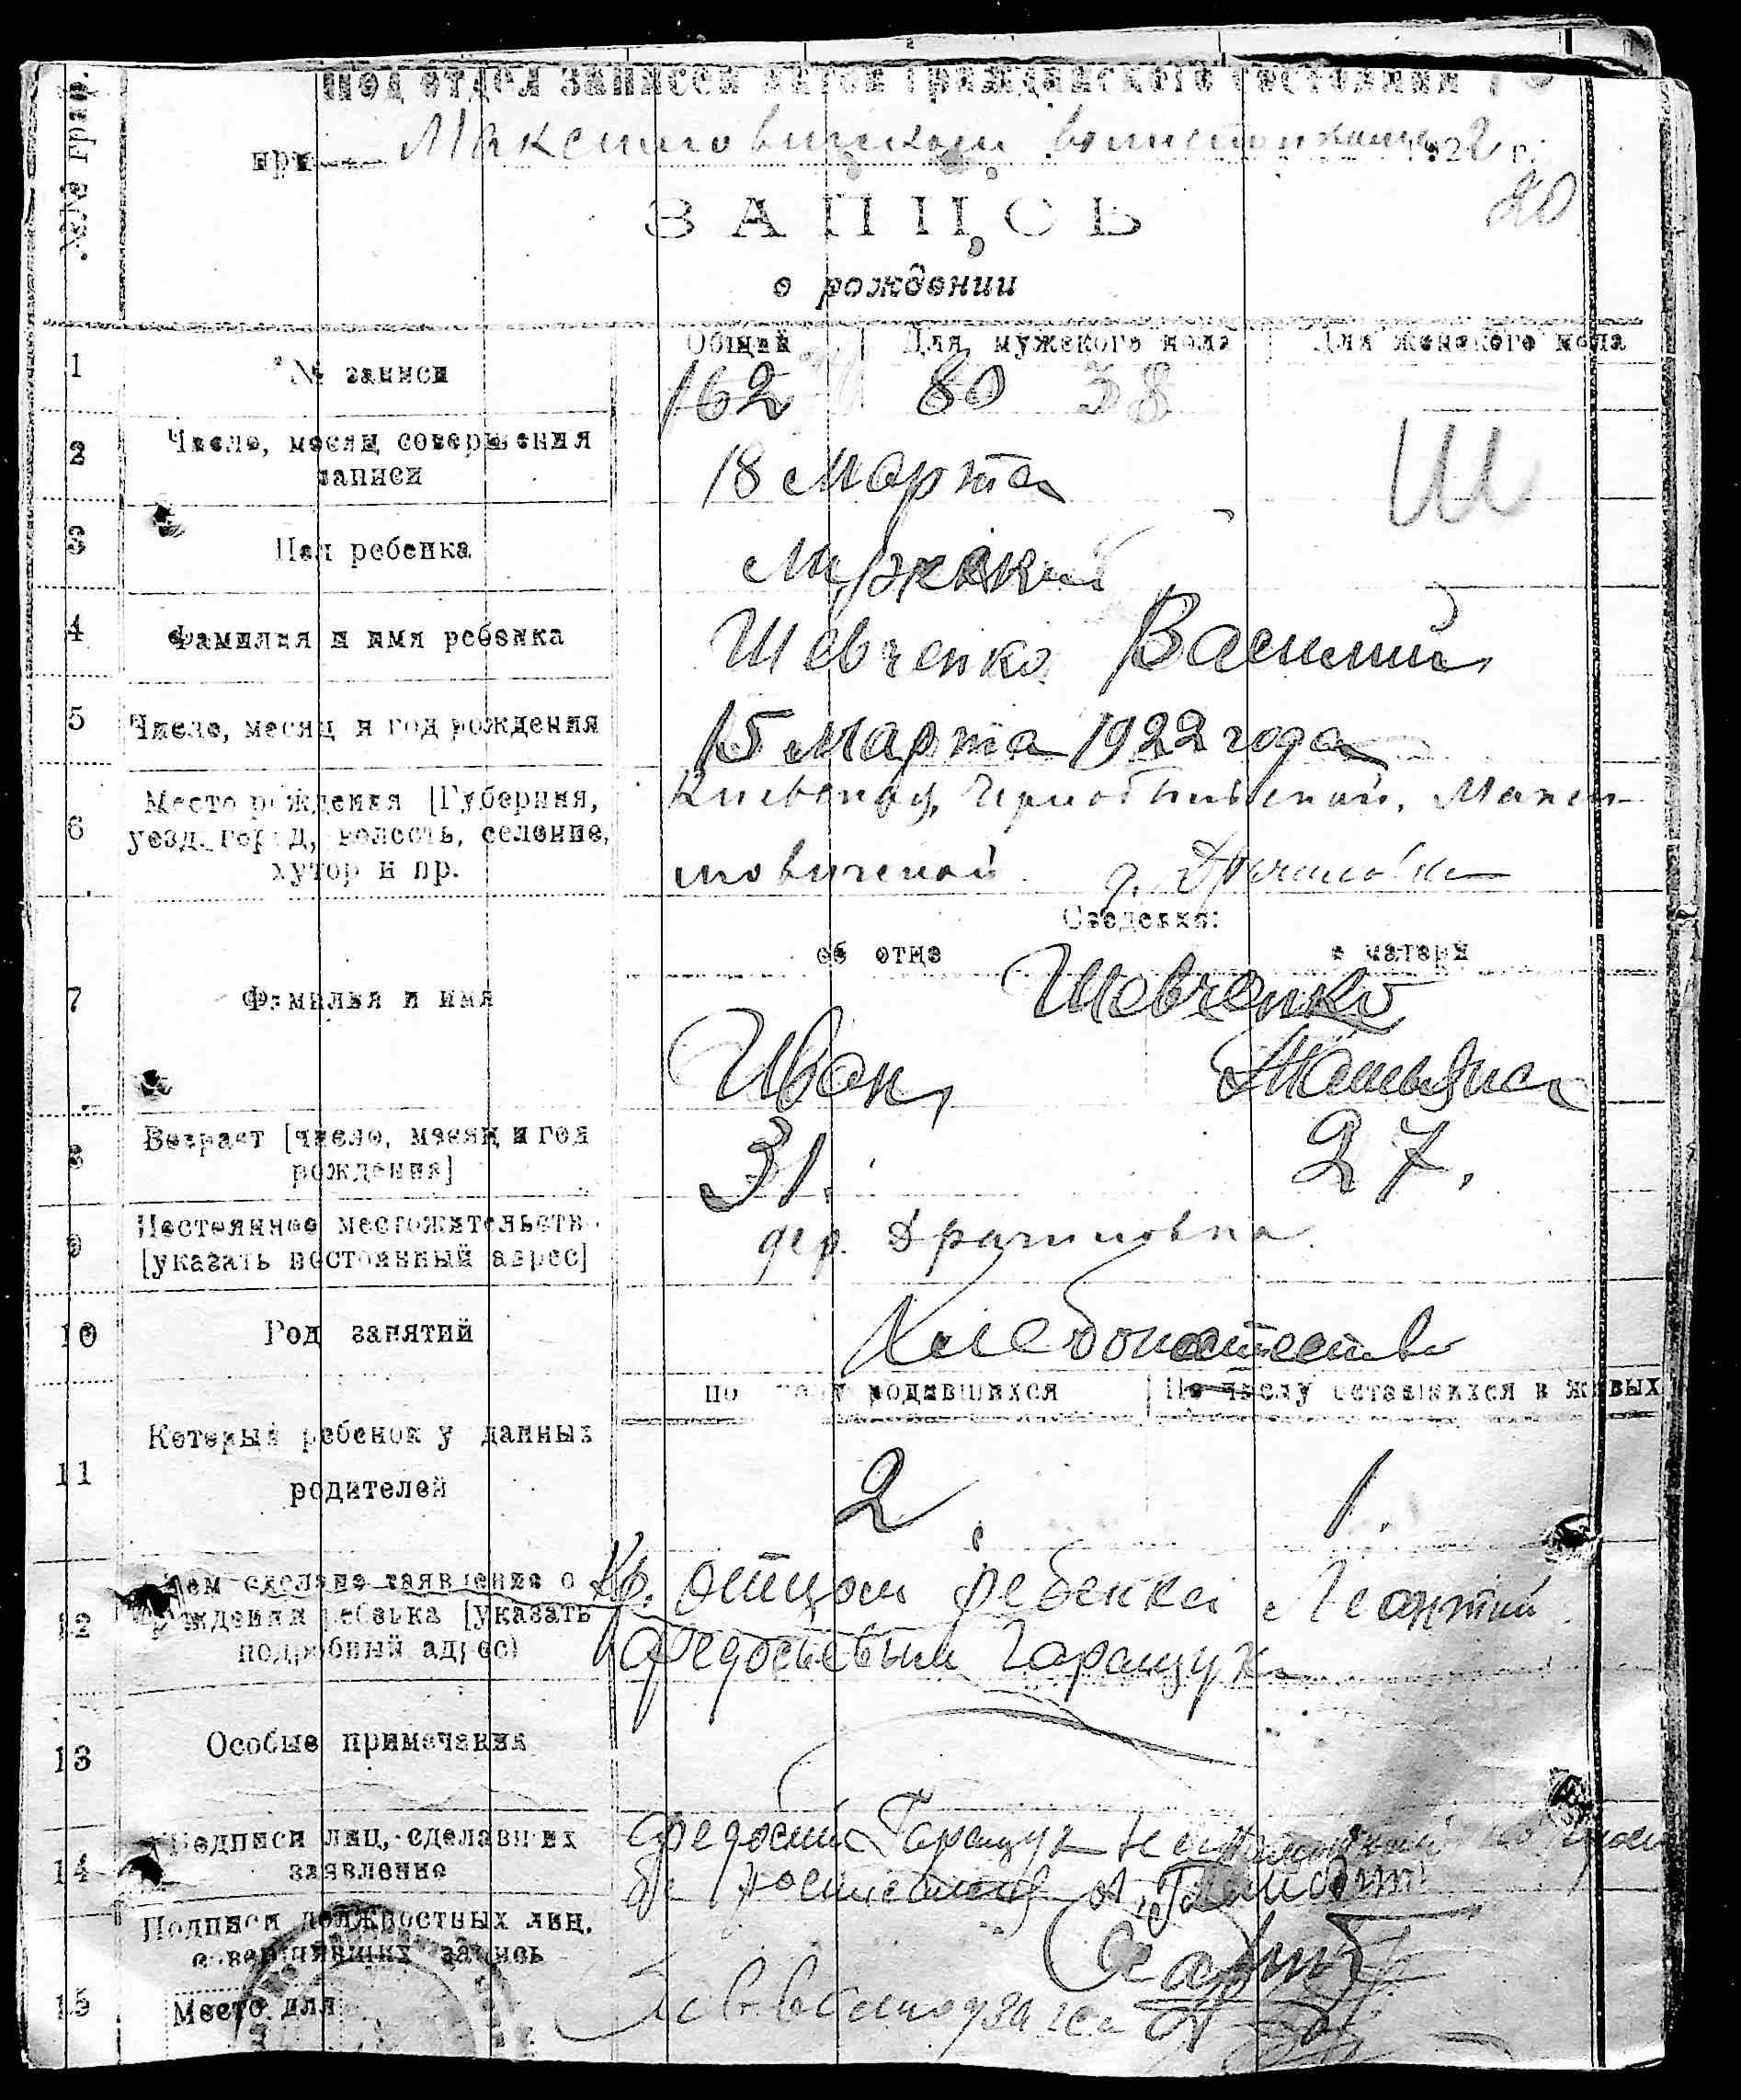 Под отдел записей актов гражданского состояния
при Максимовицком 1922 г.
20
№№ граф.
ЗАПИСЬ
о рождении
Общий Для мужского пола Для женского пола
1 № записи 162 80 38
2 Число, месяц совершения
записи 18 Марта
Ш
3 Пол ребенка Мужской
4 Фамилия и имя ребенка Шевченко Василий
5 Число, месяц и год рождения 15 Марта 1922 года
6 Место рождения [Губерния, Киевской, Чернобыльской, Макси-
уезд, город, волость, селение,
хутор и пр. мовичской д.
Сведения:
об отце о матери
7 Фамилия и имя Шевченко
Иван Татьяна
8 Возраст [число, месяц и год
рождения] 31. 27.
9 Постоянное местожительство дер.
[указать постоянный адрес]
10 Род занятий Хлебопашество
по числу родившихся По числу оставшихся в живых
11 Который ребенок у данных
родителей 2 1
12 Кем сделано заявление о Кр. отцом ребенка Леонтий
рождении ребенка [указать
подробный адрес) Федосьевым Гаращук
13 Особые примечания
14 Подписи лиц, сделавших Федосий Гаращук
заявление
Подписи должностных лиц,
совершивших запись
15 Место для